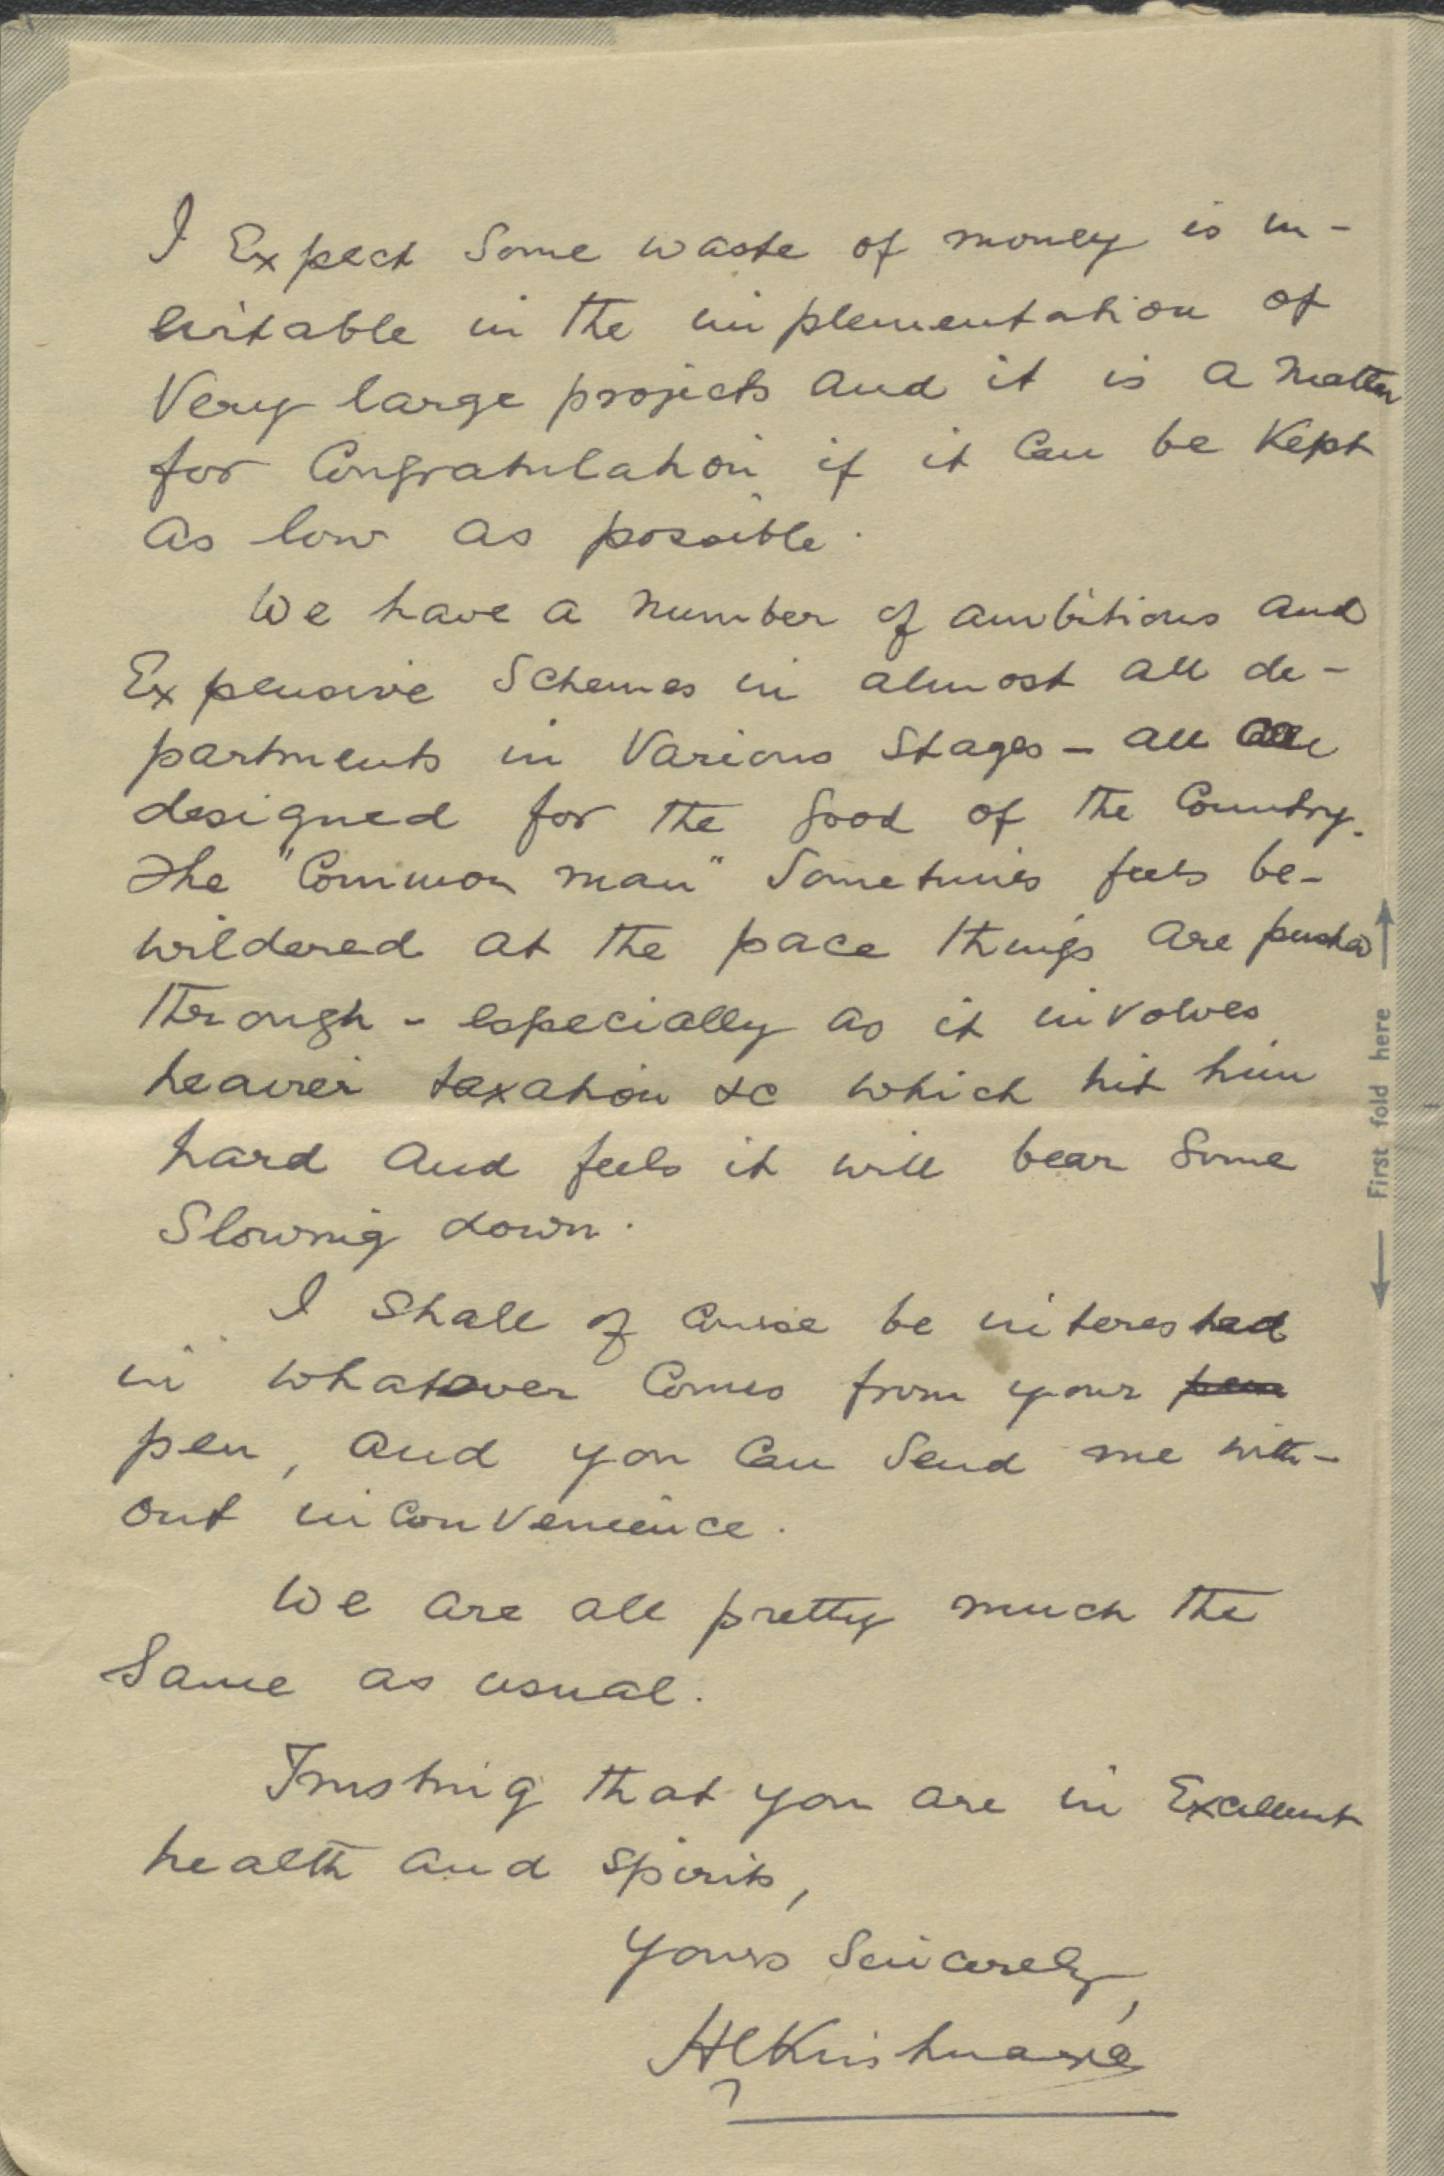 I Expect Some waste of money is in-
evitable in the implementation of
Very large projects and it is a matter
for Congratulation if it Can be Kept
as low as possible.
We have a number of ambitious and
Expensive Schemes in almost all de-
partments in Various Stages - all are
designed for the good of the Country.
The "Common man" Sometimes feels be-
wildered at the pace things are pushed
through - especially as it involves
heavier taxation &c which hit him
hard and feels it will bear Some
Slowing down.
I Shall of Course be interested
in whatever Comes from your pen
pen, and you Can Send me with-
out inConvenience.
We are all pretty much the
Same as usual.
Trusting that you are in Excellent
health and Spirits,
Yours Sincerely,
First fold here